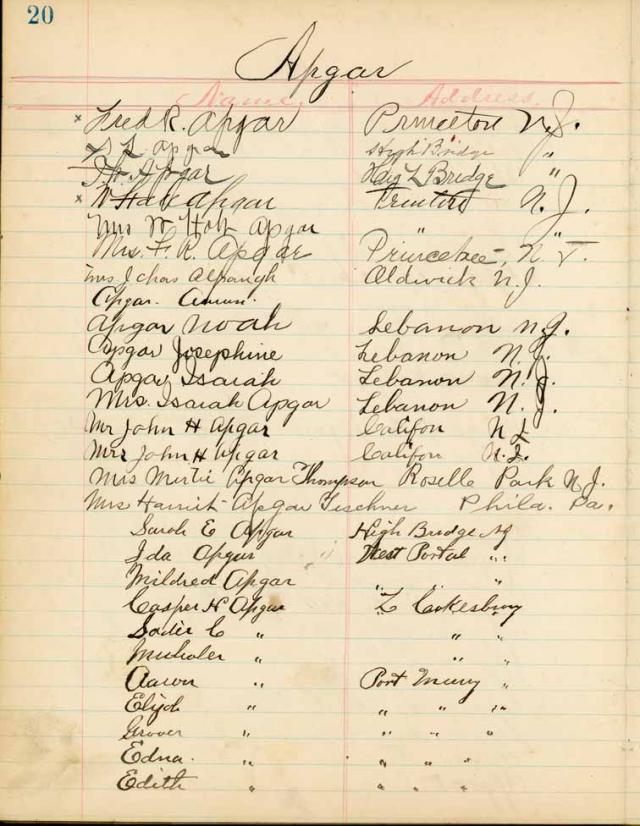 20
Apgar
Name. Address.
x Fred R. Apgar Princeton N.J.
S L Apgar High Bridge "
Apgar High Bridge "
x Apgar Trenton N.J.
Mrs W Holt Apgar " "
Mrs. F. R. Apgar Princeton, N.J.
Mrs J Chas Alpaugh Oldwick N.J.
Apgar.
Apgar Noah Lebanon N.J.
Apgar Josephine Lebanon N.J.
Apgar Isaiah Lebanon N.J.
Mrs. Isaiah Apgar Lebanon N.J.
Mr John H Apgar Califon N.J.
Mrs John H Apgar Califon N.J.
Mrs Mertie Apgar Thompson Roselle Park N.J.
Mrs Apgar Phila. Pa.
Sarah E Apgar High Bridge NJ
Ida Apgar West Portal "
Mildred Apgar " "
Casper H Apgar Cokesbury
Sadie C " " "
" " "
Aaron " Port Murry "
Elijah " " " "
Grover " " " "
Edna. " " " "
Edith " " " "